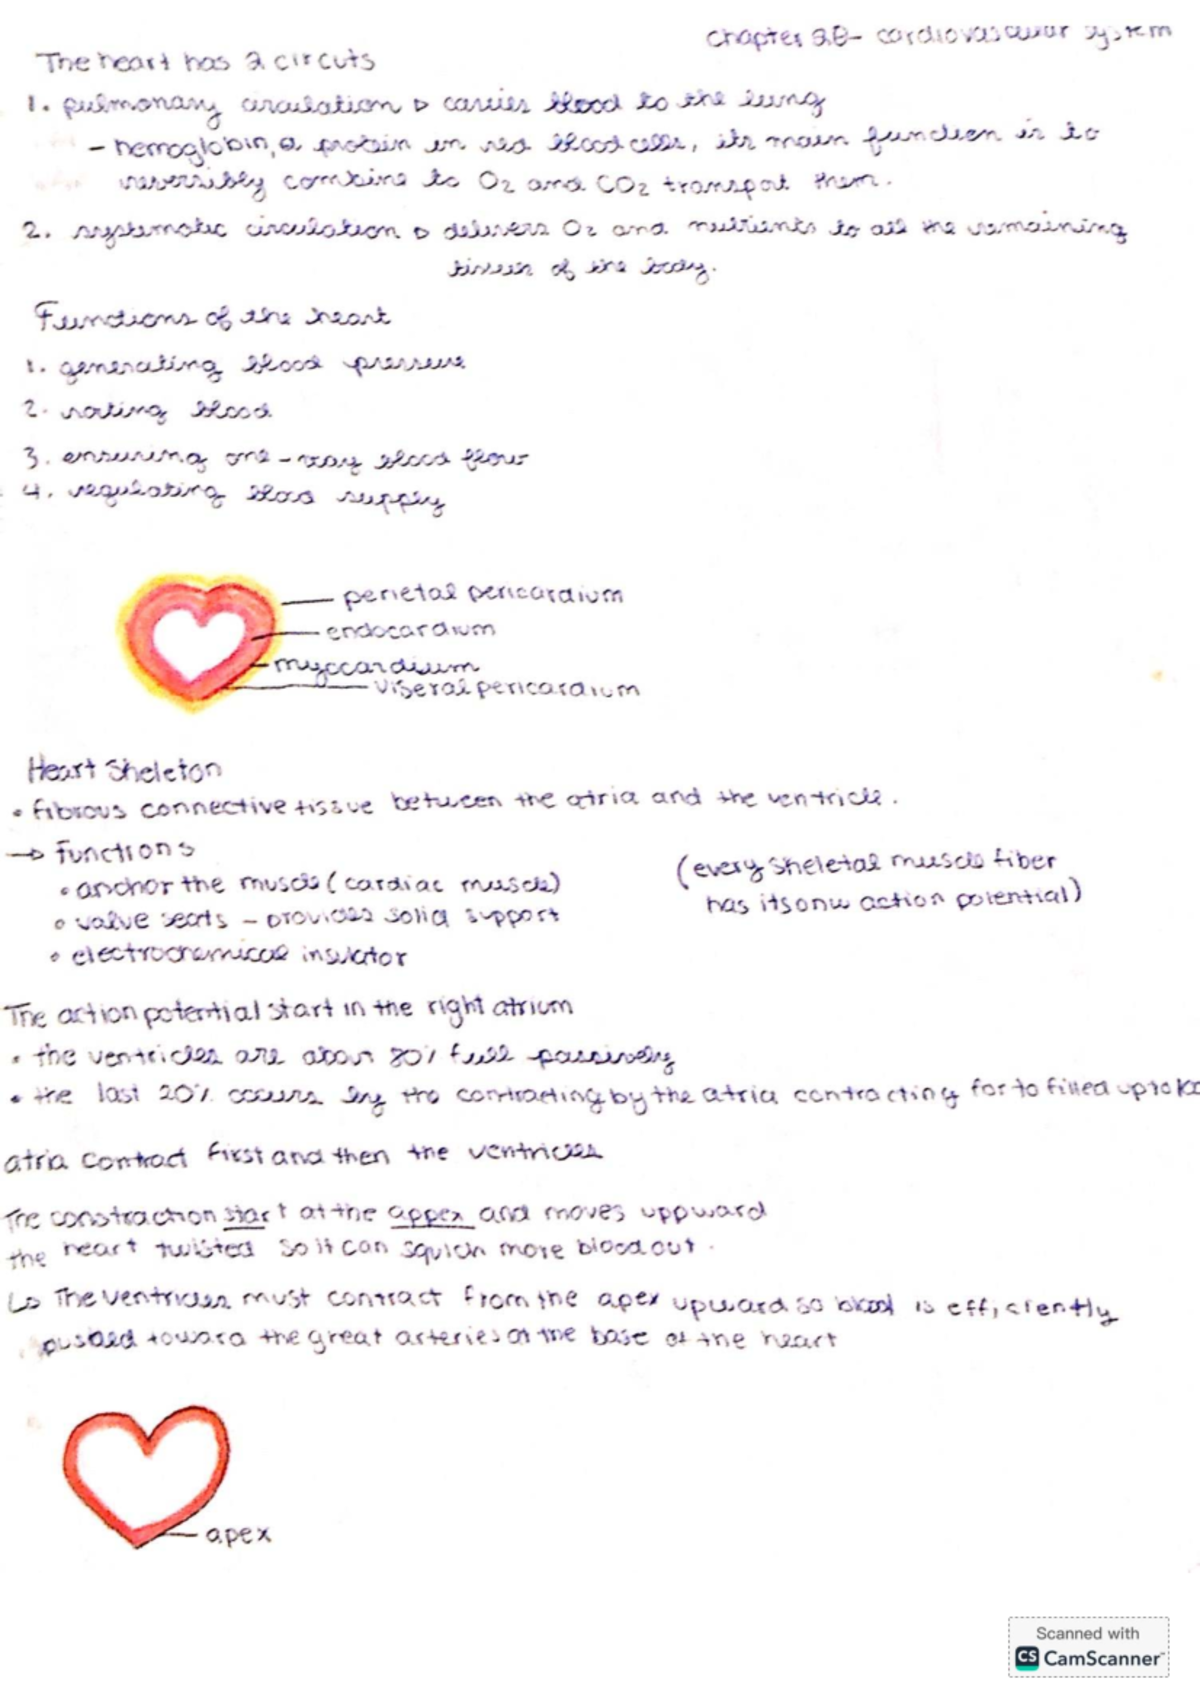 Chapter 20- cardiovascular system
The heart has 2 circuts
1. pulmonary circulation ▷ carries blood to the lung
- hemoglobin, a protein in red blood cells, its main function is to
reversibly combine to O2 and CO2 transport them.
2. systematic circulation ▷ delivers O2 and nutrients to all the remaining
tissues of the body.
Functions of the heart
1. generating blood pressure
2. roating blood
3. ensuring one-way blood flow
4. regulating blood supply
perietal pericardium
endocardium
myocardium
viseral pericardium
Heart Skeleton
• fibrous connective tissue between the atria and the ventricle.
→ Functions
• anchor the muscle (cardiac muscle)
(every skeletal muscle fiber
has its onw action potential)
• valve seats - provides solid support
• electrochemical insulator
The action potential start in the right atrium
• the ventricles are about 80% full passively
• the last 20% occurs by the contracting by the atria contracting for to filled up to
atria contract first and then the ventricles
The constraction start at the appex and moves uppward
the heart twisted so it can squich more blood out.
↳ The ventricles must contract from the apex upward so blood is efficiently
pushed toward the great arteries at the base of the heart
apex
Scanned with
CS CamScanner